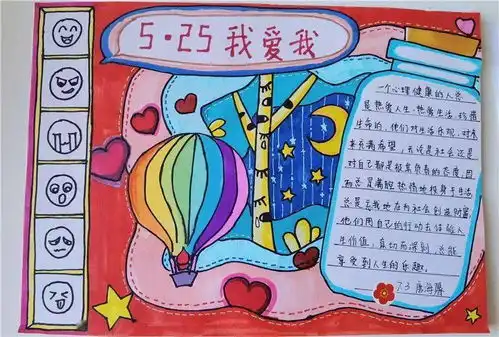 5·25我爱我
一个心理健康的人总
是热爱人生,热爱生活,珍惜
生命的,他们对生活乐观,对未
来充满希望,无论是社会还是
对自己都是极其负责的态度,因
而总是满腔热情地投身于生活
总是主动地在为社会创造财富
他们用自己的行动去体验人
生价值,真切而深刻,总能
享受到人生的乐趣。
7.3 唐海